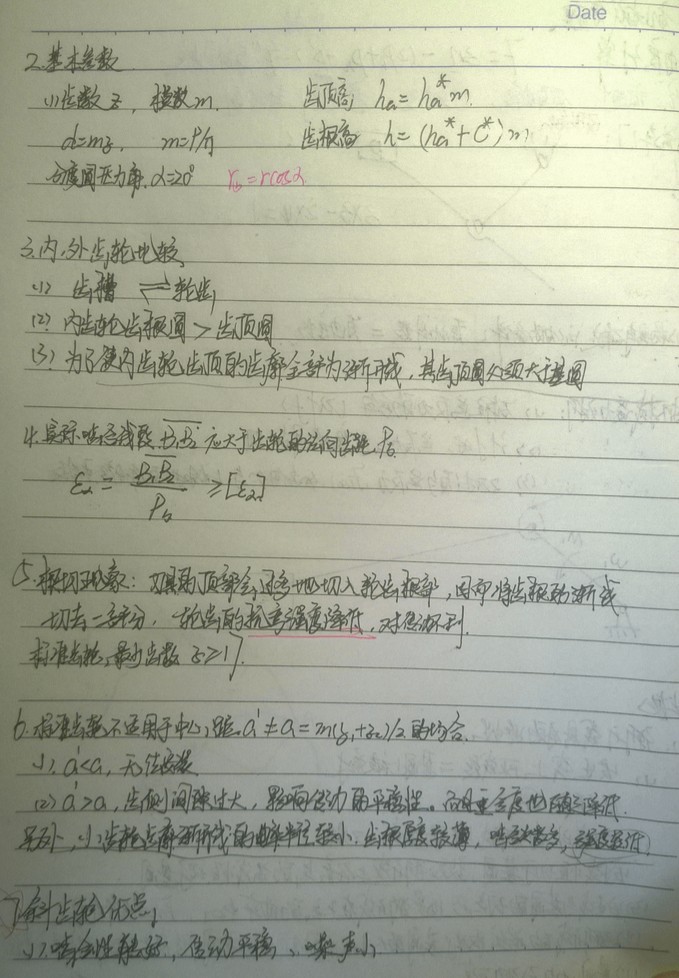 Date
2.基本参数
(1)齿数z, 模数m. 齿顶高 ha=ha*m.
d=mz, m=P/π 齿根高 h=(ha*+C*)m
分度圆压力角.α=20° rb=rcosα
3.内、外齿轮比较
(1) 齿槽 ⇌ 轮齿
(2) 内齿轮齿根圆>齿顶圆
(3) 为了使内齿轮齿顶的齿廓全部为渐开线,其齿顶圆必须大于基圆
4.实际啮合线段B1B2应大于齿轮的法向齿距Pb
εα = B1B2/Pb ≥[εα]
5.根切现象:刀具的顶部会过多地切入轮齿根部,因而将齿根的渐开线
切去一部分,轮齿的抗弯强度降低,对传动不利.
标准齿轮,最少齿数 z≥17.
6.标准齿轮不适用于中心距a'≠a=m(z1+z2)/2的场合.
(1) a'<a,无法安装
(2) a'>a,齿侧间隙过大,影响传动的平稳性.而且重合度也随之降低
另外,小齿轮齿廓渐开线的曲率半径较小.齿根厚度较薄,啮合次数多,强度较低.
7.斜齿轮优点:
(1)啮合性能好,传动平稳、噪声小